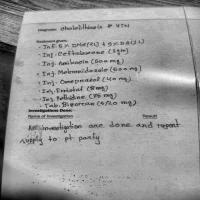 Diagnosis: Cholelithiasis # HTN
Treatment given:
- Inf. 5% DNS (2L) + 5% DA (1L)
- Inj. Ceftriaxone (1gm)
- Inj. Amikacin (500 mg)
- Inj. Metronidazole (500 mg)
- Inj. Omeprazole (40 mg)
- Inj. (8mg)
- Inj. Pethidine (75 mg)
- Tab. (5/20 mg)
Investigations Done:
Name of Investigation Result
All investigation are done and report
supply to pt party